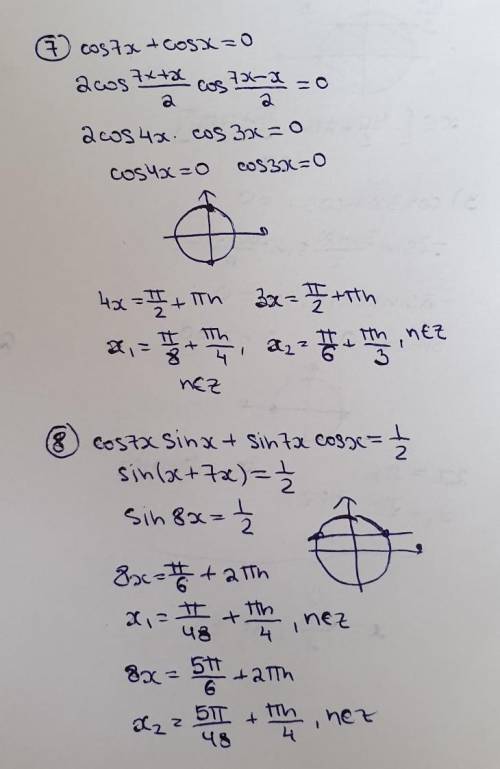 ⑦ cos7x + cosx = 0
2cos (7x+x)/2 cos (7x-x)/2 = 0
2cos4x · cos3x = 0
cos4x = 0 cos3x = 0
4x = π/2 + πn 3x = π/2 + πn
x₁ = π/8 + πn/4, x₂ = π/6 + πn/3, n∈Z
n∈Z
⑧ cos7x sinx + sin7x cosx = 1/2
sin(x + 7x) = 1/2
sin 8x = 1/2
8x = π/6 + 2πn
x₁ = π/48 + πn/4, n∈Z
8x = 5π/6 + 2πn
x₂ = 5π/48 + πn/4, n∈Z